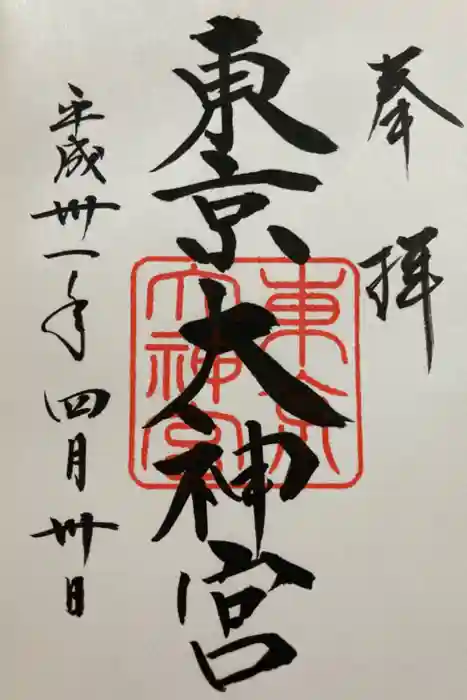 奉拝
東京大神宮
東京大神宮
平成卅一年四月卅日